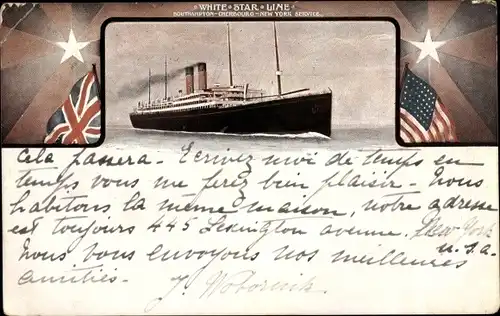 WHITE STAR LINE
SOUTHAMPTON-CHERBOURG-NEW YORK SERVICE.
Cela passera - Ecrivez moi de temps en
temps vous me ferez bien plaisir - Nous
habitons la même maison, notre adresse
est toujours 445 Lexington avenue. New York
u.s.a.
Nous vous envoyons nos meilleures
amitiés -